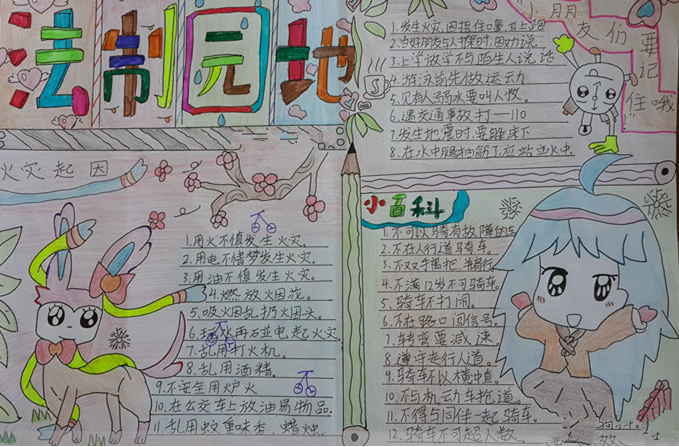 法制园地
1.发生火灾,因捂住口鼻,马上跑
2.当好朋友与人探时,因劝说
3.上学放学不与陌生人说话
4.游泳前先做运动
5.见有人溺水要叫人救。
6.遇交通事故打一110
7.发生地震时要躲床下
8.在水中腿抽筋了,应站立水中.
小朋友们要记住哦
火灾起因
1.用火不慎发生火灾。
2.用电不慎发生火灾。
3.用油不慎发生火灾。
4.燃放烟花。
5.吸火因乱扔火因头。
6.玩火再碰电起火灾。
7.乱用打火机。
8.乱用酒精。
9.不安全用炉火
10.在公交车上放油易物品。
11.乱用蚊熏味香 蜡烛。
小百科
1.不可以骑有故障的车
2.不在人行道骑车。
3.不双手离把
4.不满12岁不可骑车。
5.骑车不打闹。
6.不在路口闯信号。
7.转弯要减速。
8.遵守走行人道。
9.骑车不以横中直。
10.不与机动车抢道。
11.不得与同伴一起骑车。
12.骑车不可超人数。